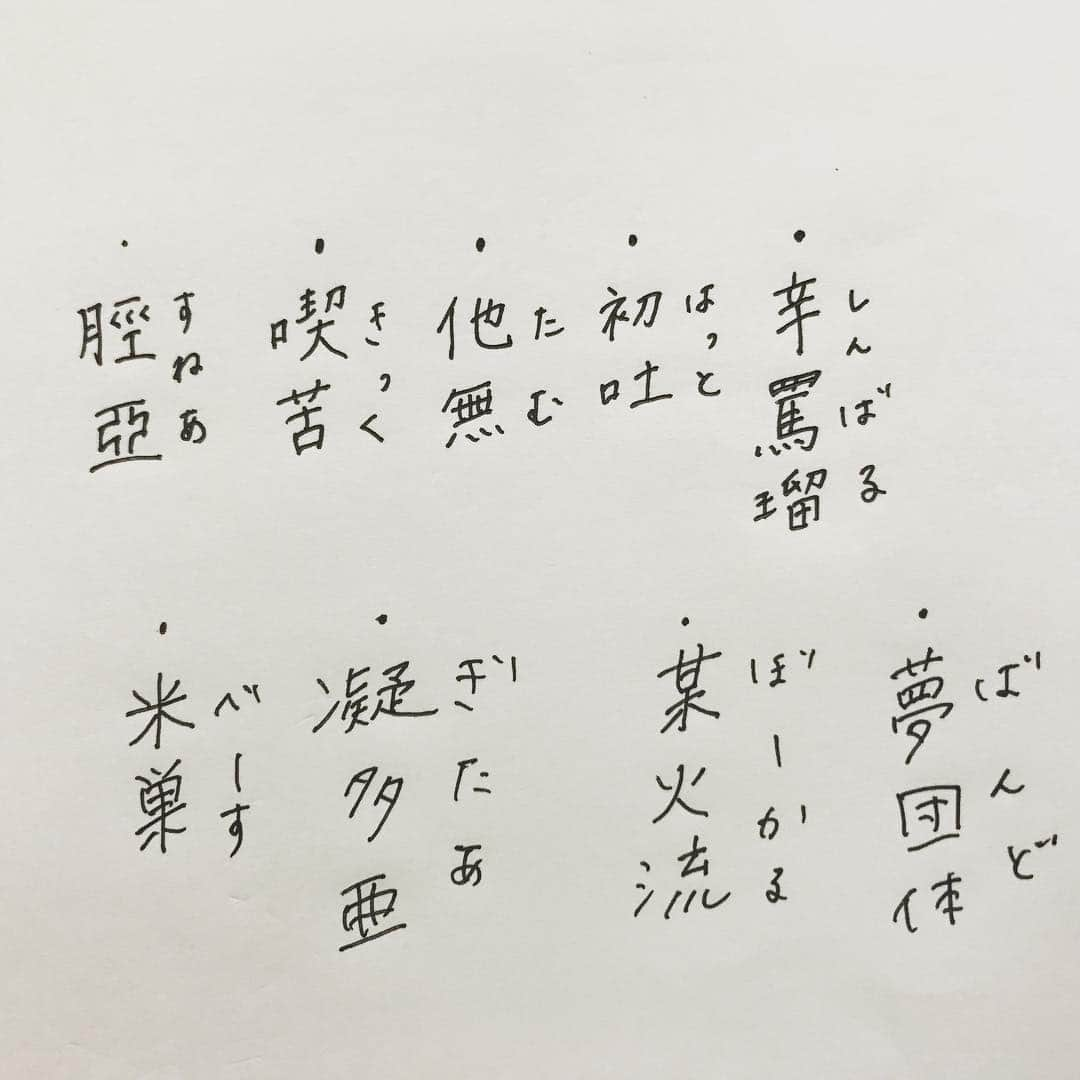 ・辛罵瑠
しんばる
・初吐
はっと
・他無
たむ
・喫苦
きっく
・脛亞
すねあ
・夢団体
ばんど
・某火流
ぼーかる
・凝多亜
ぎたあ
・米巣
べーす